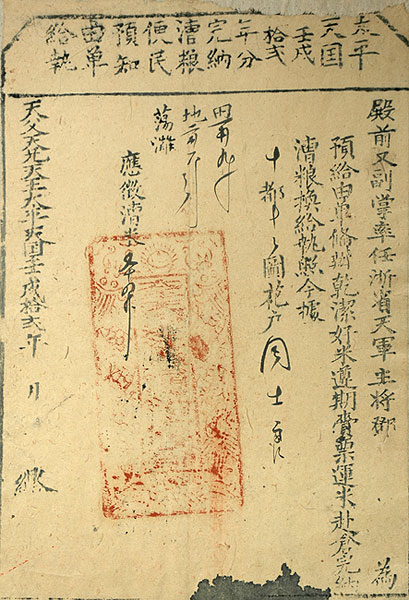 太平
天囯
壬戌
拾弍
年分
完納
漕粮
便民
預知
由单
給執
殿前又副掌率任浙省天軍主將鄧 為
預給由单俻辦乾潔好米遵期賫票運米赴倉完納
漕粮換給执照今據
十都 圖花户周士
田
地
蕩灘
應徵漕米
天父天兄天王太平天囯壬戌拾弍年 月 繳